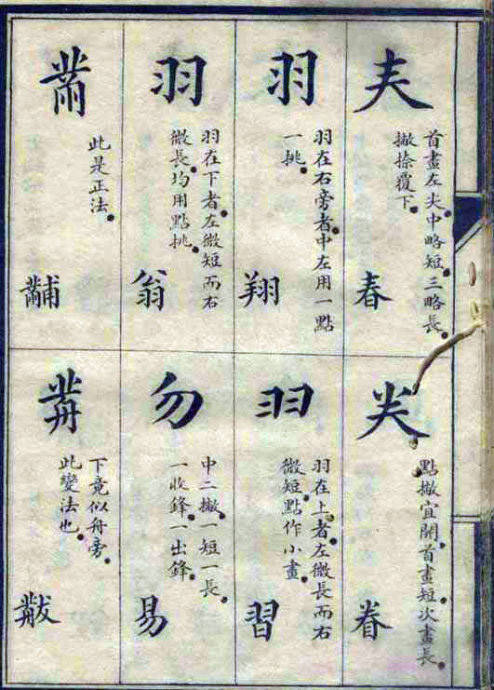 𡗗
首畫左尖中略短三略長
撇捺覆下
春
羽
羽在右旁者中左用一點
一挑
翔
羽
羽在下者左微短而右
微長均用點挑
翁
黹
此是正法
黼
龹
點撇宜開首畫短次畫長
眷
羽
羽在上者左微長而右
微短點作小畫
習
勿
中二撇一短一長
一收鋒一出鋒
易
黹
下竟似舟旁
此變法也
黻